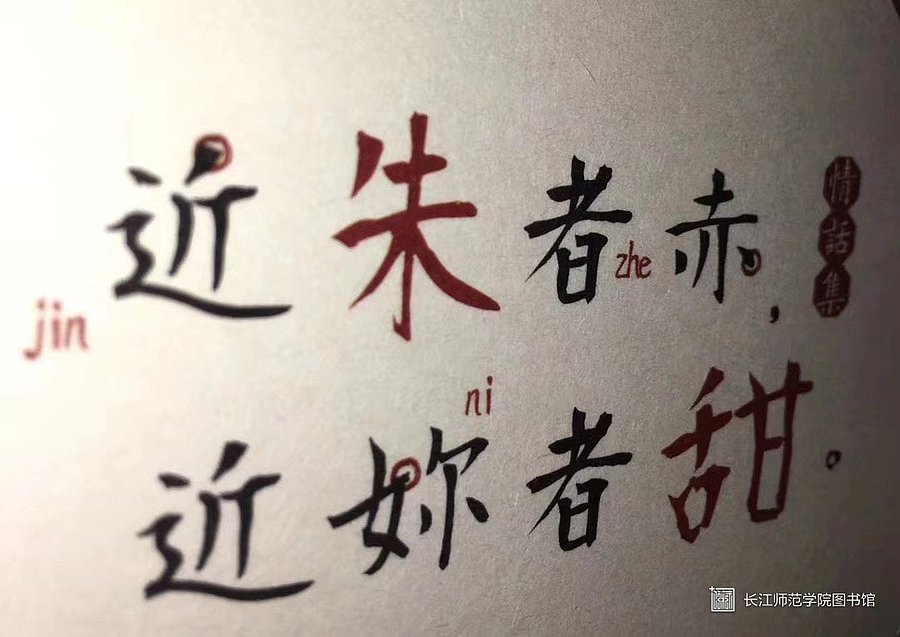 近朱者赤，
jin
zhe
情话集
ni
近妳者甜。
长江师范学院图书馆